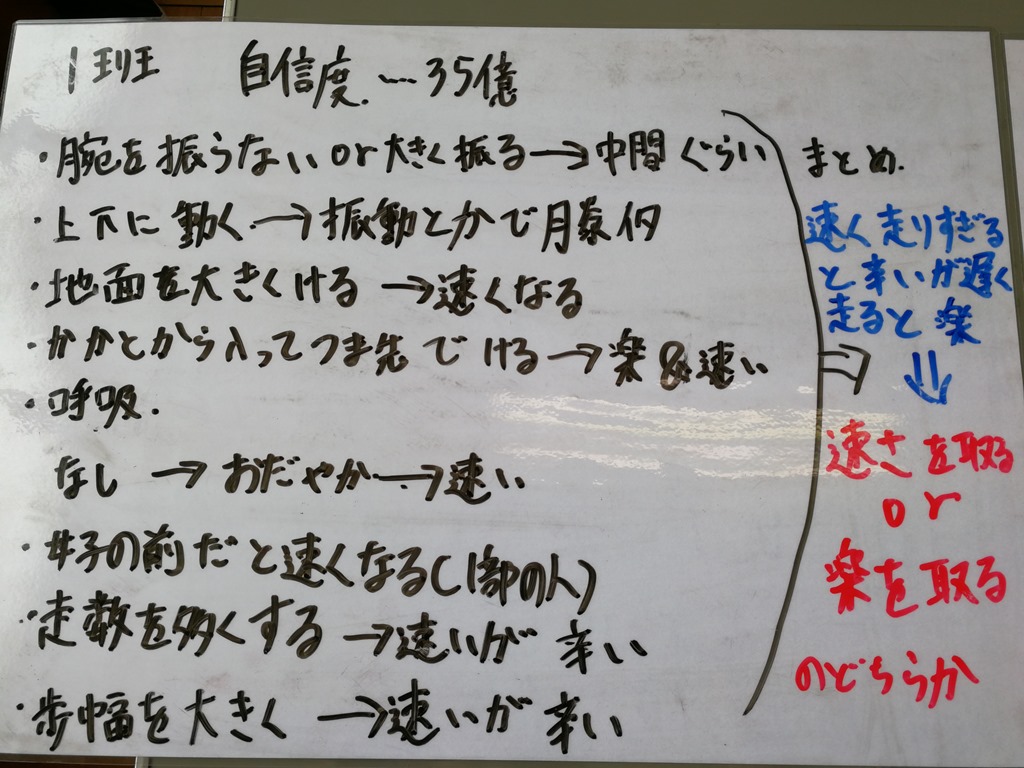 1班 自信度…35億
・腕を振らないor大きく振る→中間ぐらい
・上下に動く→振動とかで
・地面を大きくける→速くなる
・かかとから入ってつま先でける→楽&速い
・呼吸.
なし→おだやか→速い
・女子の前だと速くなる(1部の人)
・走数を多くする→速いが辛い
・歩幅を大きく→速いが辛い
まとめ.
速く走りすぎる
と辛いが遅く
走ると楽
⇓
速さを取る
or
楽を取る
のどちらか